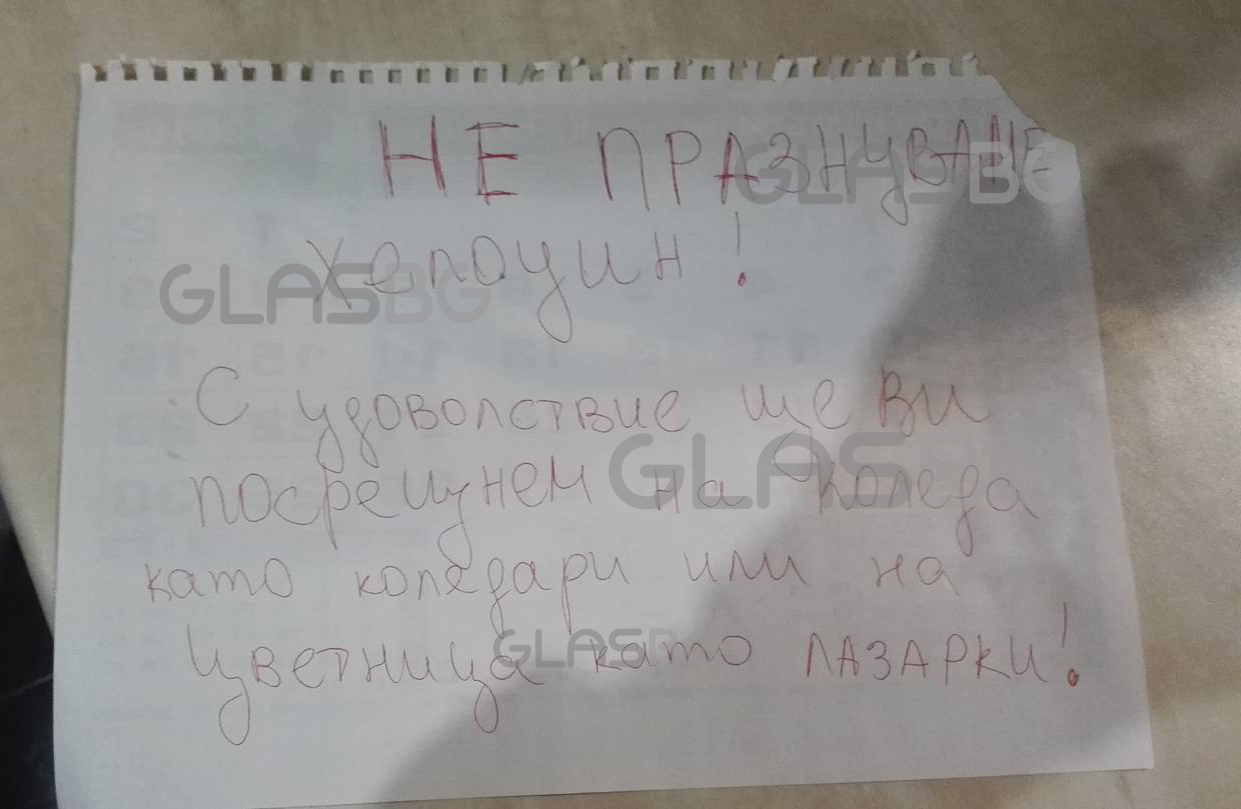 НЕ ПРАЗНУВАМЕ
Хелоуин!
С удоволствие ще Ви
посрещнем на Коледа
като коледари или на
Цветница като ЛАЗАРКИ!
GLASBG
GLASBG
GLASBG
GLASBG